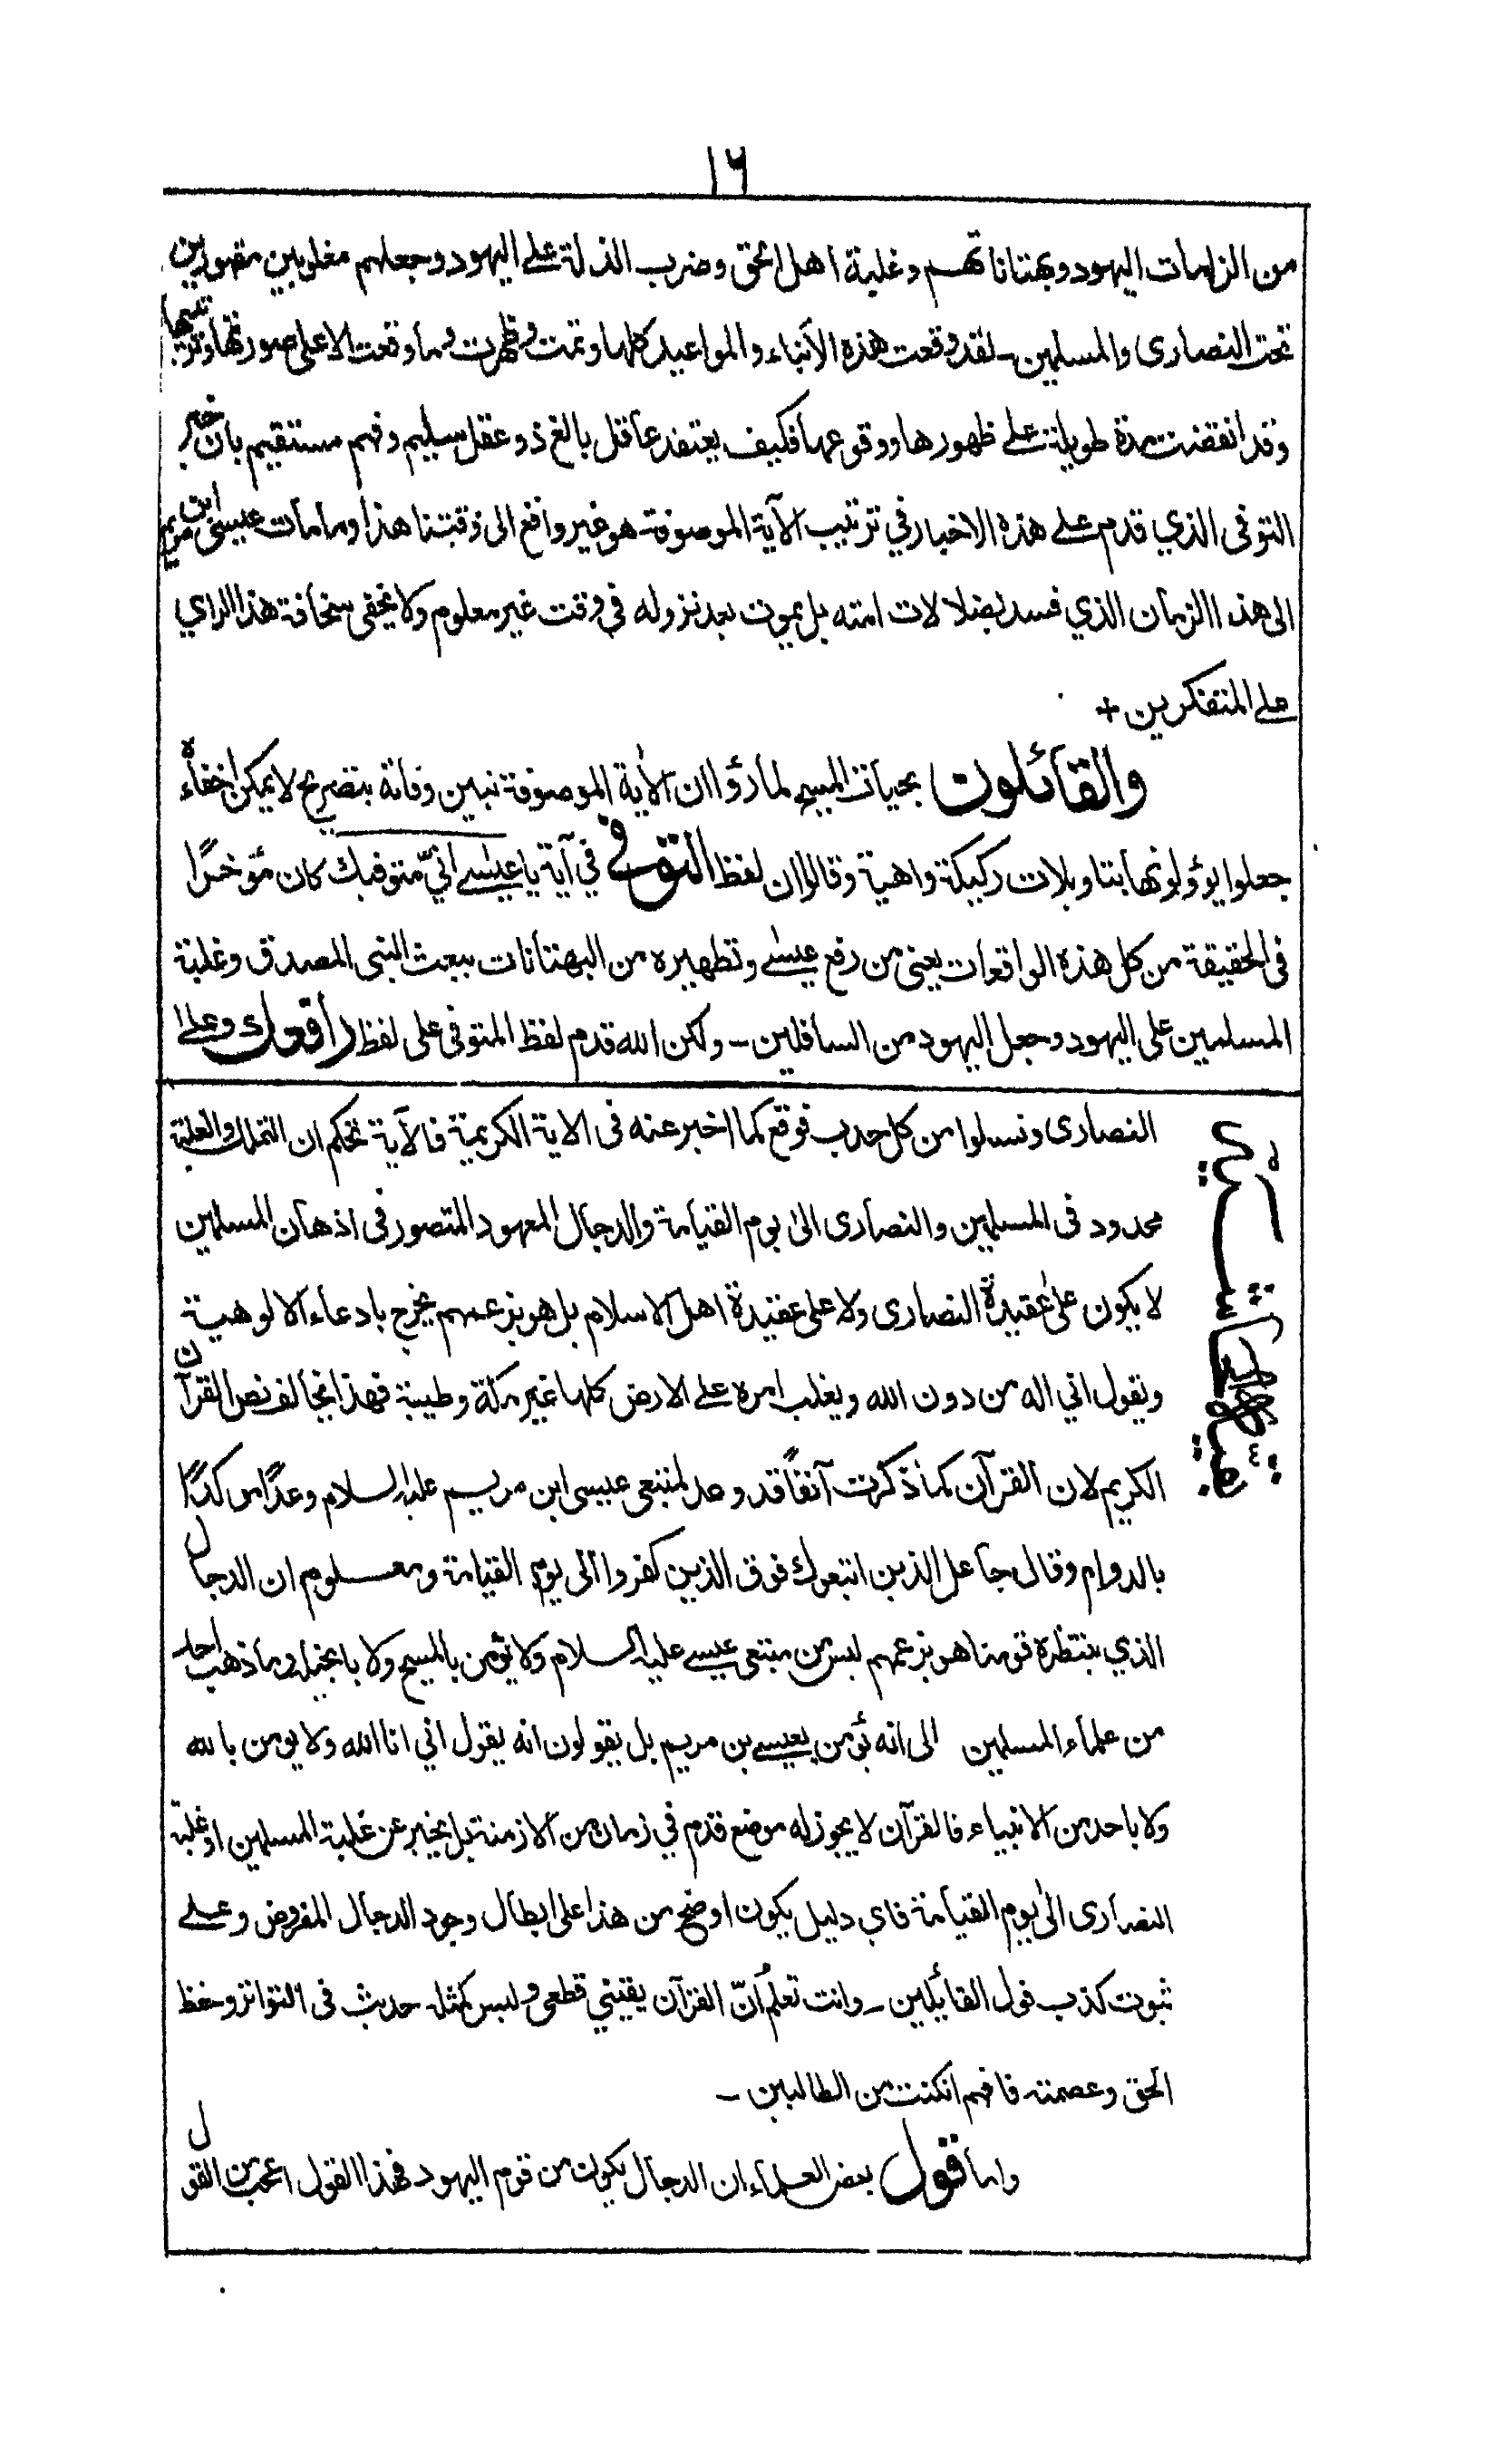 ١٦
من الزامات اليهود وبهتاناتهم وغلبة اهل الحق وضرب الذلة على اليهود وجعلهم مغلوبين مقهورين
تحت النصارى والمسلمين۔ لقد وقعت هذه الأنباء والمواعيد كلها وتمت وظهرت وما وقعت الا على صورتها وترتيبها
وقد انقضت مدة طويلة على ظهورها ووقوعها فكيف يعتقد عاقل بالغ ذو عقل سليم وفهم مستقيم بان خبر
التوفى الذي قدم على هذه الاخبار في ترتيب الآية الموصوفة هو غير واقع الى وقتنا هذا وما مات عيسى ابن مريم
الى هذا الزمان الذي فسد بضلالات امته بل يموت بعد نزوله في وقت غير معلوم ولا يخفى سخافة هذا الراي
على المتفكرين +
والقائلون بحيات المسيح لما رؤا ان الآية الموصوفة تبين وفاته بتصريح لا يمكن اخفاءه
جعلوا يؤولونها بتاويلات ركيكة واهية وقالوا ان لفظ التوفي في آية يا عيسى انيّ متوفيك كان مؤخرًا
فى الحقيقة من كل هذه الواقعات يعنى من رفع عيسى وتطهيره من البهتانات ببعث النبى المصدق وغلبة
المسلمين على اليهود وجعل اليهود من السافلين - ولكن الله قدم لفظ المتوفى على لفظ رافعك وعلى
النصارى ونسلوا من كل حدب فوقع كما اخبر عنه فى الاية الكريمة فالآية تحكم ان التملك والغلبة
محدود فى المسلمين والنصارى الى يوم القيامة والدجال المعهود المتصور فى اذهان المسلمين
لا يكون على عقيدة النصارى ولا على عقيدة اهل الاسلام بل هو بزعمهم يخرج بادعاء الالوهية
ويقول اني اله من دون الله ويغلب امره على الارض كلها غير مكة وطيبة فهذا يخالف نص القرآن
الكريم لان القرآن كما ذكرت آنفاً قد وعد لمتبعى عيسى ابن مريم عليه السلام وعدًا مؤكدًا
بالدوام وقال جاعل الذين اتبعوك فوق الذين كفروا الى يوم القيامة ومعلوم ان الدجال
الذي ينتظره قومنا هو بزعمهم ليس من متبعى عيسى عليه السلام ولا يؤمن بالمسيح ولا بانجيله وما ذهب احد
من علماء المسلمين الى انه يؤمن بعيسى بن مريم بل يقولون انه يقول اني انا الله ولا يومن بالله
ولا باحد من الانبياء فالقرآن لا يجوز له موضع قدم في زمان من الازمنة بل يخبر عن غلبة المسلمين او غلبة
النصارى الى يوم القيامة فاي دليل يكون اوضح من هذا على ابطال وجود الدجال المفروض وعلى
ثبوت كذب قول القائلين ۔ وانت تعلم أنّ القرآن يقيني قطعي وليس كمثله حديث فى التواتر وحفظ
الحق وعصمته فافهم انكنت من الطالبين -
واما قول بعض العلماء ان الدجال يكون من قوم اليهود فهذا القول اعجب من القول